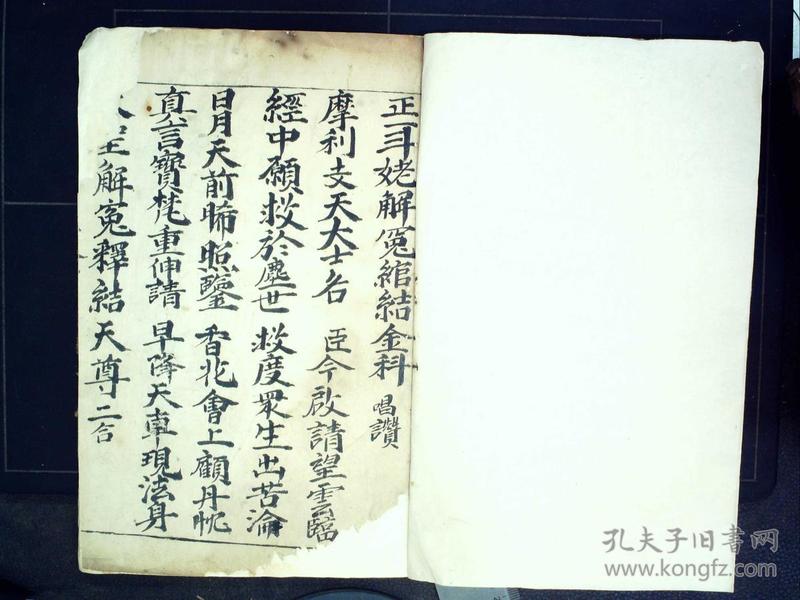 正一斗姥解冤綰結金科 唱讚
摩利支天大士名 臣今啟請望雲臨
經中願救於塵世 救度眾生出苦淪
日月天前晞照鑒 香花會上顧丹忱
真言寶梵重伸請 早降天車現法身
解冤釋結天尊 二合
孔夫子旧书网
www.kongfz.com